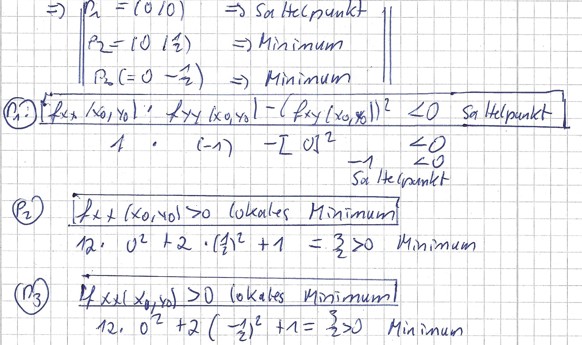 => P₁ = (0/0) => Sattelpunkt
P₂ = (0/½) => Minimum
P₃ (=0 -½) => Minimum
P₁: fxx(x₀,y₀) · fyy(x₀,y₀) - (fxy(x₀,y₀))² <0 Sattelpunkt
1 · (-1) -[0]² <0
-1 <0
Sattelpunkt
P₂ fxx(x₀,y₀)>0 lokales Minimum
12 · 0² + 2 · (½)² + 1 = 3/2 >0 Minimum
P₃ fxx(x₀,y₀) >0 lokales Minimum
12 · 0² + 2 (-½)² + 1 = 3/2 >0 Minimum